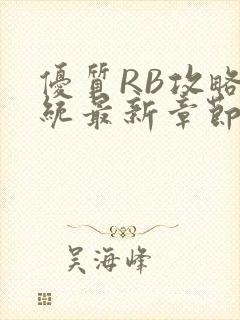 優質RB攻略
統最新章節
吴海峰